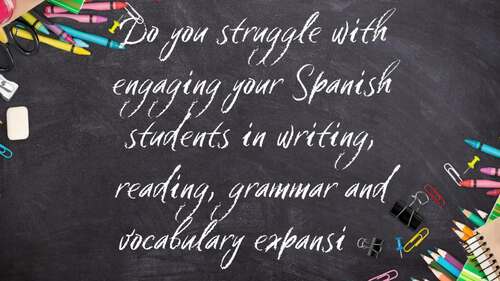 Do you struggle with
engaging your Spanish
students in writing,
reading, grammar and
vocabulary expansi